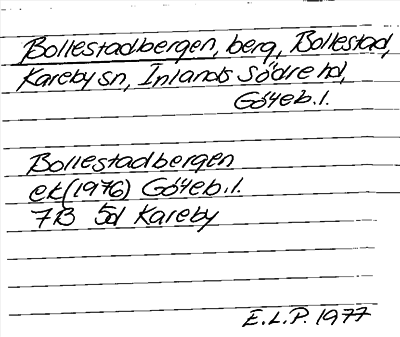 Bollestadbergen, berg, Bollestad,
Kareby sn, Inlands Södre hd,
Göteb. l.
Bollestadbergen
ek (1976) Göteb. l.
7B 5d Kareby
E.L.P. 1977